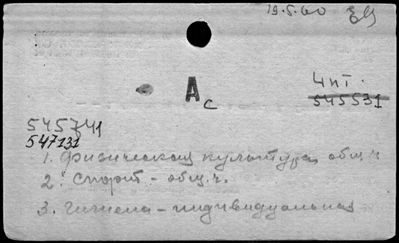 19.5.60
Ас
4 пт.
545531
545741
547131
1. Физическая культура общ. ч.
2. Спорт - общ. ч.
3. Гигиена - индивидуальная